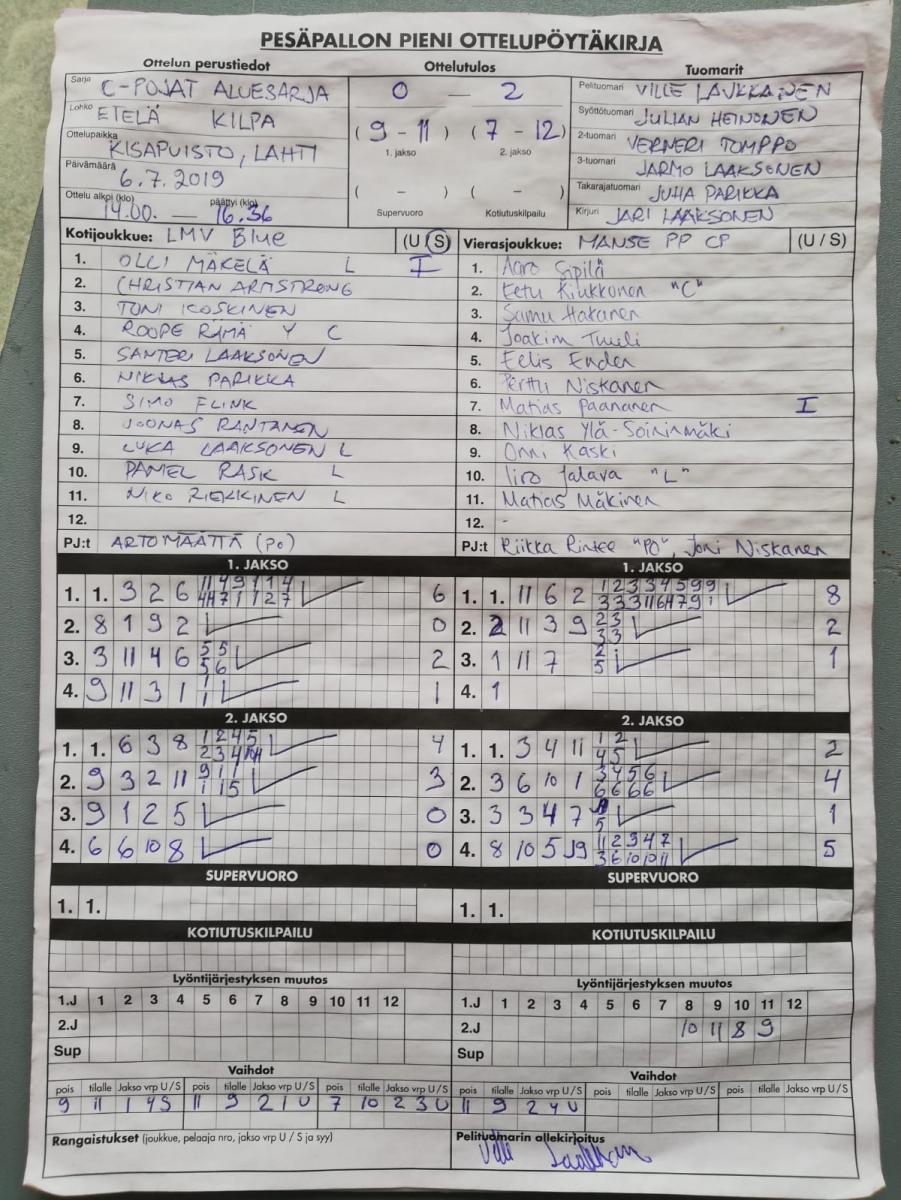 PESÄPALLON PIENI OTTELUPÖYTÄKIRJA
Ottelun perustiedot
Sarja C-POJAT ALUESARJA
Lohko ETELÄ KILPA
Ottelupaikka KISAPUISTO, LAHTI
Päivämäärä 6.7.2019
Ottelu alkoi (klo) 14.00. — päättyi (klo) 16.36
Ottelutulos
0 — 2
(9 - 11) (7 - 12)
1. jakso 2. jakso
( – ) ( – )
Supervuoro Kotiutuskilpailu
Tuomarit
Pelituomari VILLE LAUKKANEN
Syöttötuomari JULIAN HEINONEN
2-tuomari VERNERI TOMPPO
3-tuomari JARMO LAAKSONEN
Takarajatuomari JUHA PARIKKA
Kirjuri JARI LAAKSONEN
Kotijoukkue: LMV Blue (U / S)
1. OLLI MÄKELÄ L I
2. CHRISTIAN ARMSTRONG
3. TONI KOSKINEN
4. ROOPE RÄMÄ Y C
5. SANTERI LAAKSONEN
6. NIKLAS PARIKKA
7. SIMO FLINK
8. JOONAS RANTANEN
9. LUKA LAAKSONEN L
10. DANIEL RASK L
11. NIKO RIEKKINEN L
12.
PJ:t ARTO MÄÄTTÄ (PO)
Vierasjoukkue: MANSE PP CP (U / S)
1. Aaro Sipilä
2. Eetu Kiukkonen "C"
3. Samu Hakanen
4. Joakim Tuuli
5. Eelis Enden
6. Perttu Niskanen
7. Matias Paananen I
8. Niklas Ylä-Soininmäki
9. Onni Kaski
10. Iiro Jalava "L"
11. Matias Mäkinen
12. -
PJ:t Riikka Rintee "PO", Joni Niskanen
1. JAKSO
1. 1. 3 2 6 6
2. 8 1 9 2 0
3. 3 11 4 6 5 5 2
5 6
4. 9 11 3 1 1 1
1
1. JAKSO
1. 1. 11 6 2 8
2. 2 11 3 9 2 3 2
3 3
3. 1 11 7 2 1
5
4. 1
2. JAKSO
1. 1. 6 3 8 1 2 4 5 4
2 3 4
2. 9 3 2 11 9 1 1 3
1 1 5
3. 9 1 2 5 0
4. 6 6 10 8 0
2. JAKSO
1. 1. 3 4 11 1 2 2
4 5
2. 3 6 10 1 3 4 5 6 4
6 6 6 6
3. 3 3 4 7 1
5
4. 8 10 5 9 11 2 3 4 7 5
3 6 10 10 11
SUPERVUORO
1. 1.
SUPERVUORO
1. 1.
KOTIUTUSKILPAILU
KOTIUTUSKILPAILU
Lyöntijärjestyksen muutos
1.J 1 2 3 4 5 6 7 8 9 10 11 12
2.J
Sup
Lyöntijärjestyksen muutos
1.J 1 2 3 4 5 6 7 8 9 10 11 12
2.J 10 11 8 9
Sup
Vaihdot
pois tilalle Jakso vrp U / S pois tilalle Jakso vrp U / S pois tilalle Jakso vrp U / S
9 11 1 4 S 11 9 2 1 U 7 10 2 3 U
Vaihdot
pois tilalle Jakso vrp U / S pois tilalle Jakso vrp U / S pois tilalle Jakso vrp U / S
11 9 2 4 U
Rangaistukset (joukkue, pelaaja nro, jakso vrp U / S ja syy)
Pelituomarin allekirjoitus